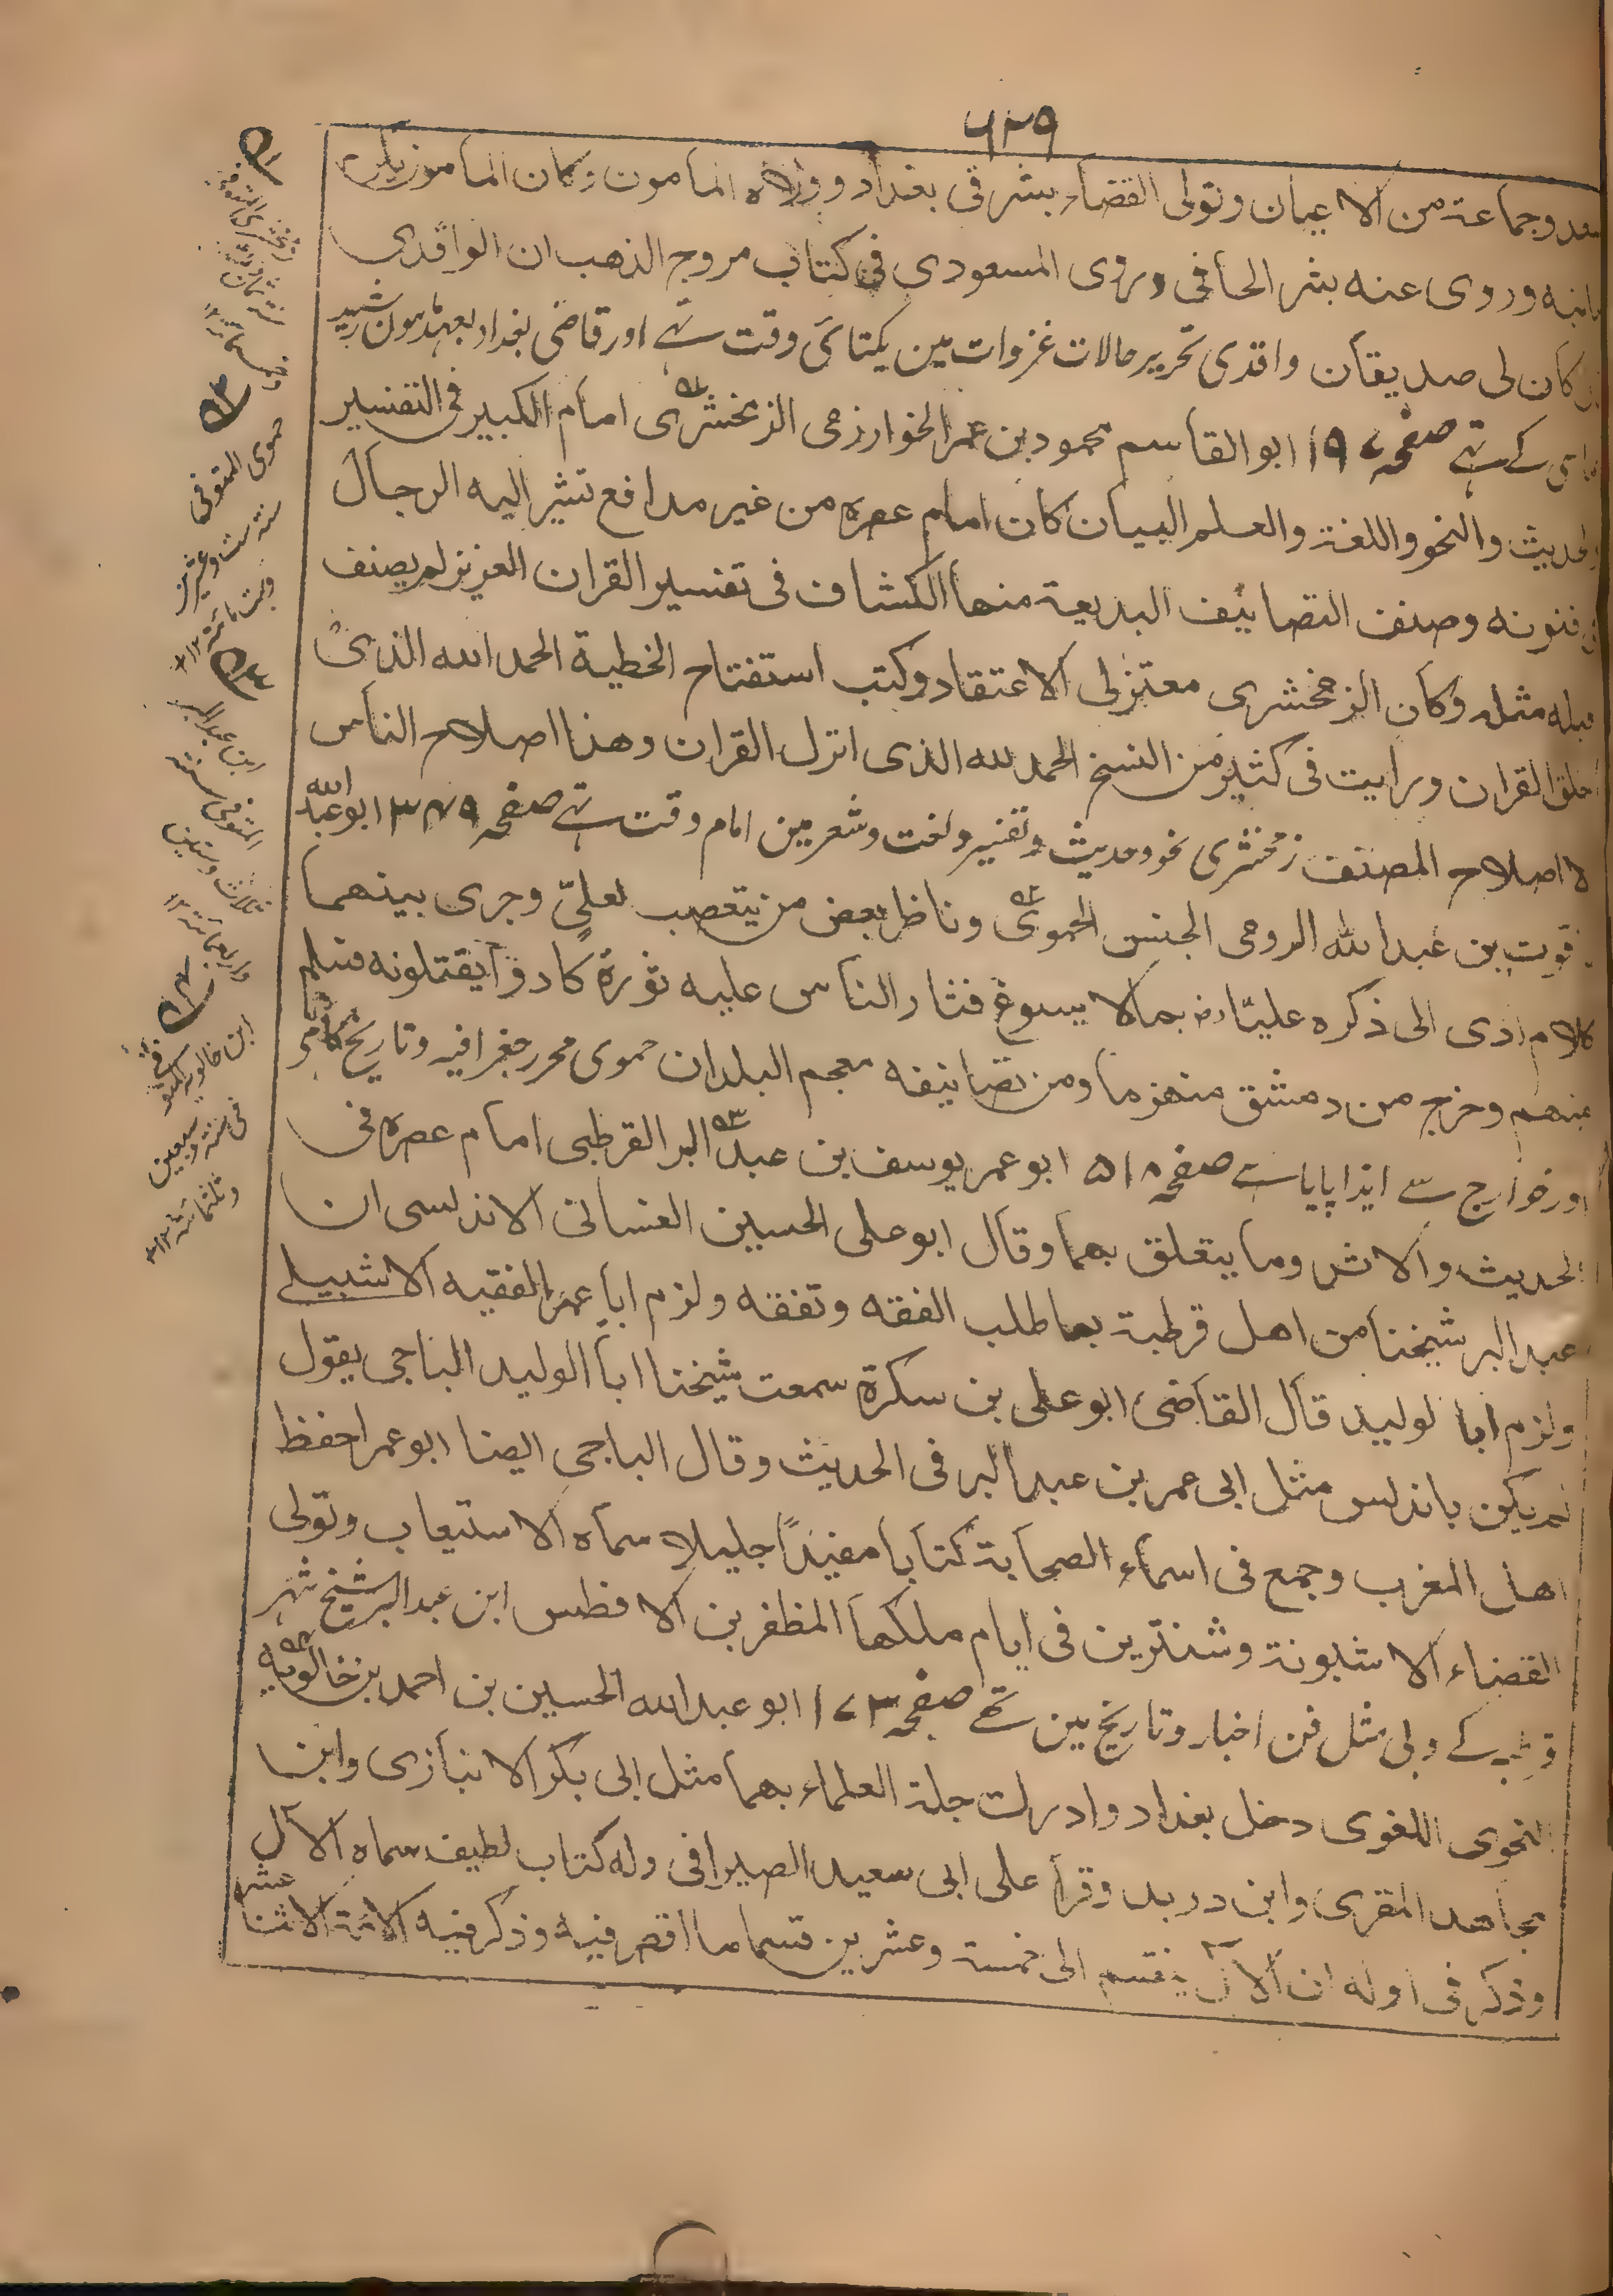 ۶۲۹
سعد وجماعة من الاعيان وتولى القضاء بشرقى بغداد وولاه المامون وكان المامون يكرم
جانبه وروى عنه بشر الحافى وروى المسعودى فى كتاب مروج الذهب ان الواقدى
كان لى صديقان واقدى تحرير حالات غزوات مين يكتائ وقت تہے اور قاضى بغداد بعهد هارون رشيد
كے تہے صفحہ ۱۹۷ ابو القاسم محمود بن عمر الخوارزمى الزمخشرى امام الكبير فى التفسير
والحديث والنحو واللغة والعلم البيان كان امام عصره من غير مدافع تشير اليه الرجال
فى فنونه وصنف التصانيف البديعة منها الكشاف فى تفسير القران العزيز لم يصنف
قبله مثله وكان الزمخشرى معتزلى الاعتقاد وكتب استفتاح الخطبة الحمد الله الذى
خلق القران ورايت فى كثير من النسخ الحمد لله الذى انزل القران وهذا اصلاح الناس
لا اصلاح المصنف زمخشرى نحو وحديث وتفسير ولغت وشعر مين امام وقت تہے صفحہ ۳۷۹ ابو عبد الله
ياقوت بن عبد الله الرومى الجنس الحموى وناظر بعض من يتعصب لعلىّ وجرى بينهما
كلام ادى الى ذكره عليّا رض بما لا يسوغ فثار الناس عليه ثورة كادوا يقتلونه فسلم
منهم وخرج من دمشق منهزما ومن تصانيفه معجم البلدان حموى محرر جغرافيه وتاريخ
اور خوارج سے ايذا پايا ہے صفحہ ۵۱۸ ابو عمر يوسف بن عبد البر القرطبى امام عصره فى
الحديث والاثر وما يتعلق بهما وقال ابو على الحسين الغسانى الاندلسى ان
عبد البر شيخنا من اهل قرطبة بها طلب الفقه وتفقه ولزم ابا عمر الفقيه الاشبيلى
ولزم ابا لوليد قال القاضى ابو على بن سكرة سمعت شيخنا ابا الوليد الباجى يقول
لم يكن باندلس مثل ابى عمر بن عبد البر فى الحديث وقال الباجى ايضا ابو عمر احفظ
اهل المغرب وجمع فى اسماء الصحابة كتابا مفيداً جليلا سماه الاستيعاب وتولى
القضاء الاشبونة وشنترين فى ايام ملكها المظفر بن الافطس ابن عبد البر شيخ شهر
قرطبہ كے ولى مثل فن اخبار وتاريخ مين تھے صفحہ ۱۷۳ ابو عبد الله الحسين بن احمد بن خالويه
النحوى اللغوى دخل بغداد وادرك جلة العلماء بهما مثل ابى بكر الانبازى وابن
مجاهد المقرى وابن دريد وقرأ على ابى سعيد الصيرافى وله كتاب لطيف سماه الآل
وذكر فى اوله ان الآل ينقسم الى خمسة وعشرين قسما ما اقصر فيه وذكر فيه الائمة الاثنا عشر
حموى المتوفى
سنه ست وعشرين
وست مائة
ابن عبد البر
المتوفى سنه
ثلاث وستين
واربعمائة
ابن خالويه المتوفى
فى سنة سبعين
وثلثمائة